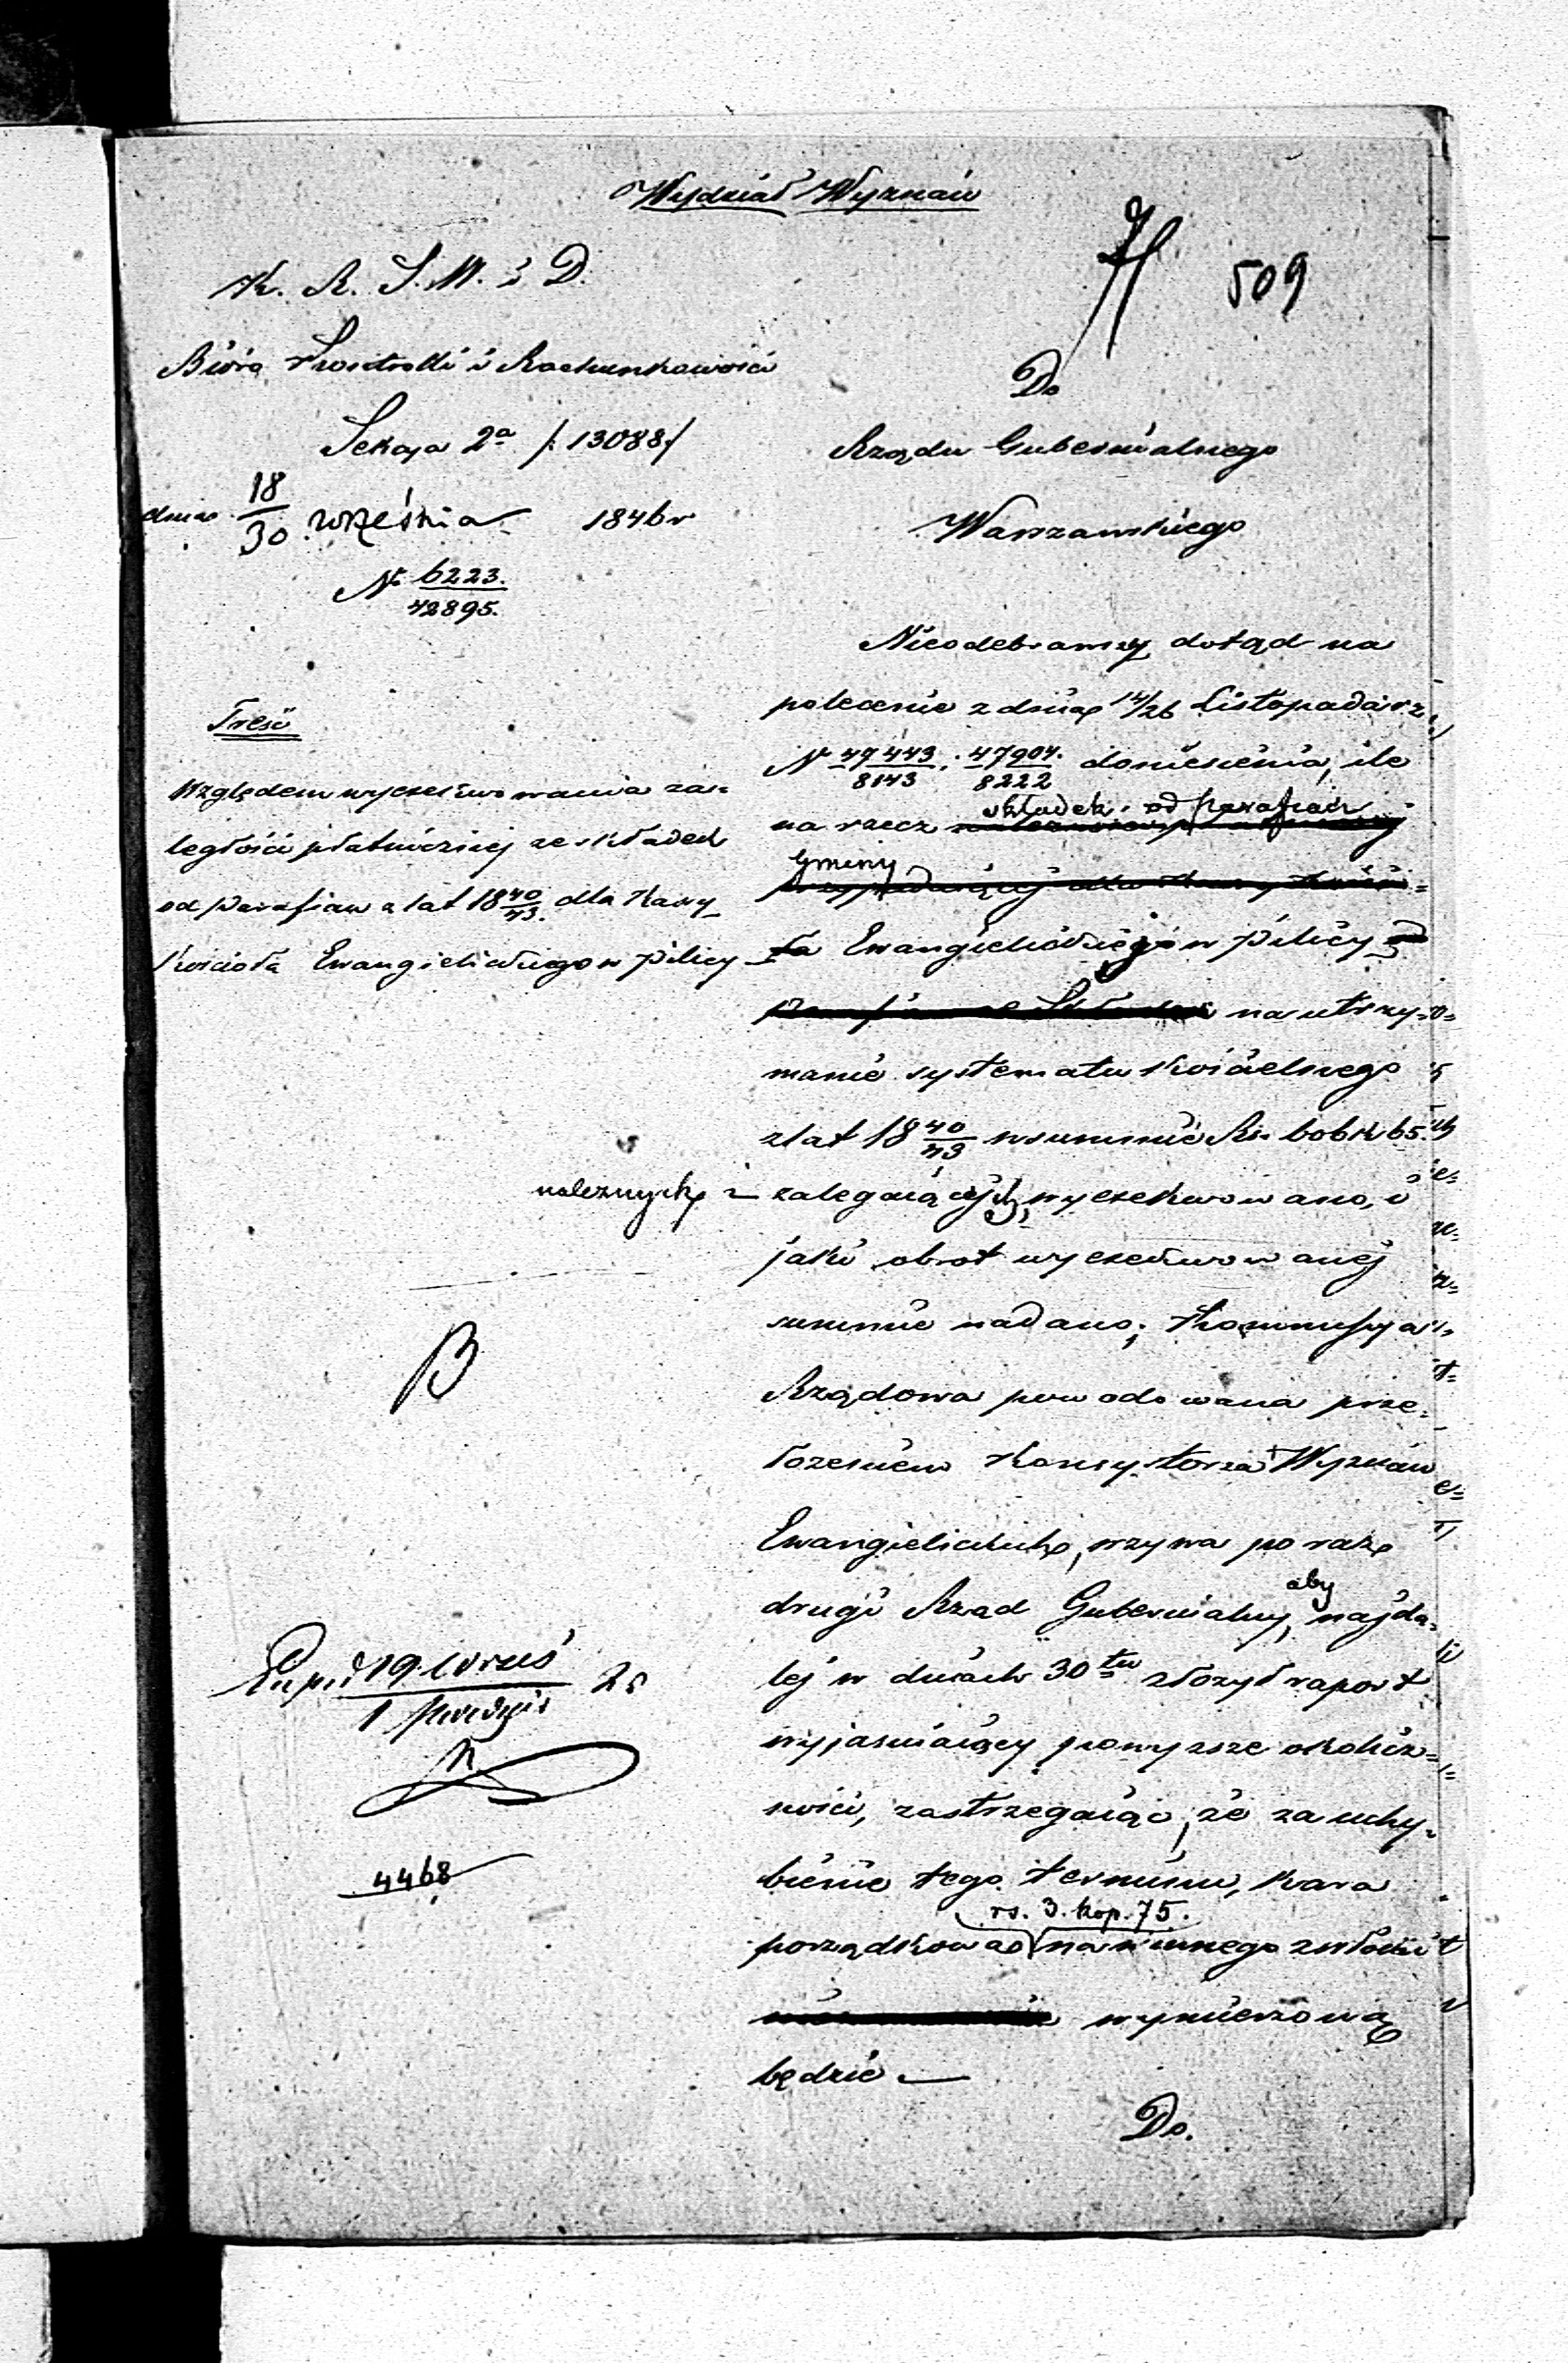 Wydział Wyznań
509
K. R. S. W. i D.
Bióro Kontrolli i Rachunkowości
Sekcya 2a /: 13088 /
dnia 18/30 września 1846 r
No 6223./42895.
Treść
Względem wyexekwowania zaa=
ległości płatniczej ze składek
od Parafian z lat 18 40/43. dla Kassy
Kościoła Ewangielickiego w Pilicy
Do
Rządu Gubernialnego
Warszawskiego
Nieodebrawszy dotąd na
polecenie z dnia 14/26 Listopada r. z.
N 47443/8143 . 47904./8222 doniesienia, ile
na rzecz składek od parafian
Gminy
Ewangielickiego w Pilicy
na utrzy=
manie systematu kościelnego
z lat 18 40/43 w summie Rs. 606 k 65.
należnych i zalegających, wyexekwowano, i
jaki obrot wyexekwowanej
summie nadano; Kommissya
Rządowa powodowana prze=
łożeniem Konsystorza Wyznań
Ewangielickich, wzywa po raz
drugi Rząd Gubernialny, aby najda=
lej w dniach 30tu złożył raport
wyjaśniaiący powyższe okolicz=
ności, zastrzegaiąc, że za uchy=
bienie tego terminu, kara
rs. 3. kop. 75.
porządkowa na winnego zwłoki
wymierzoną
będzie —
Do.
B
19 Wrześ
1 Paźdz
4468